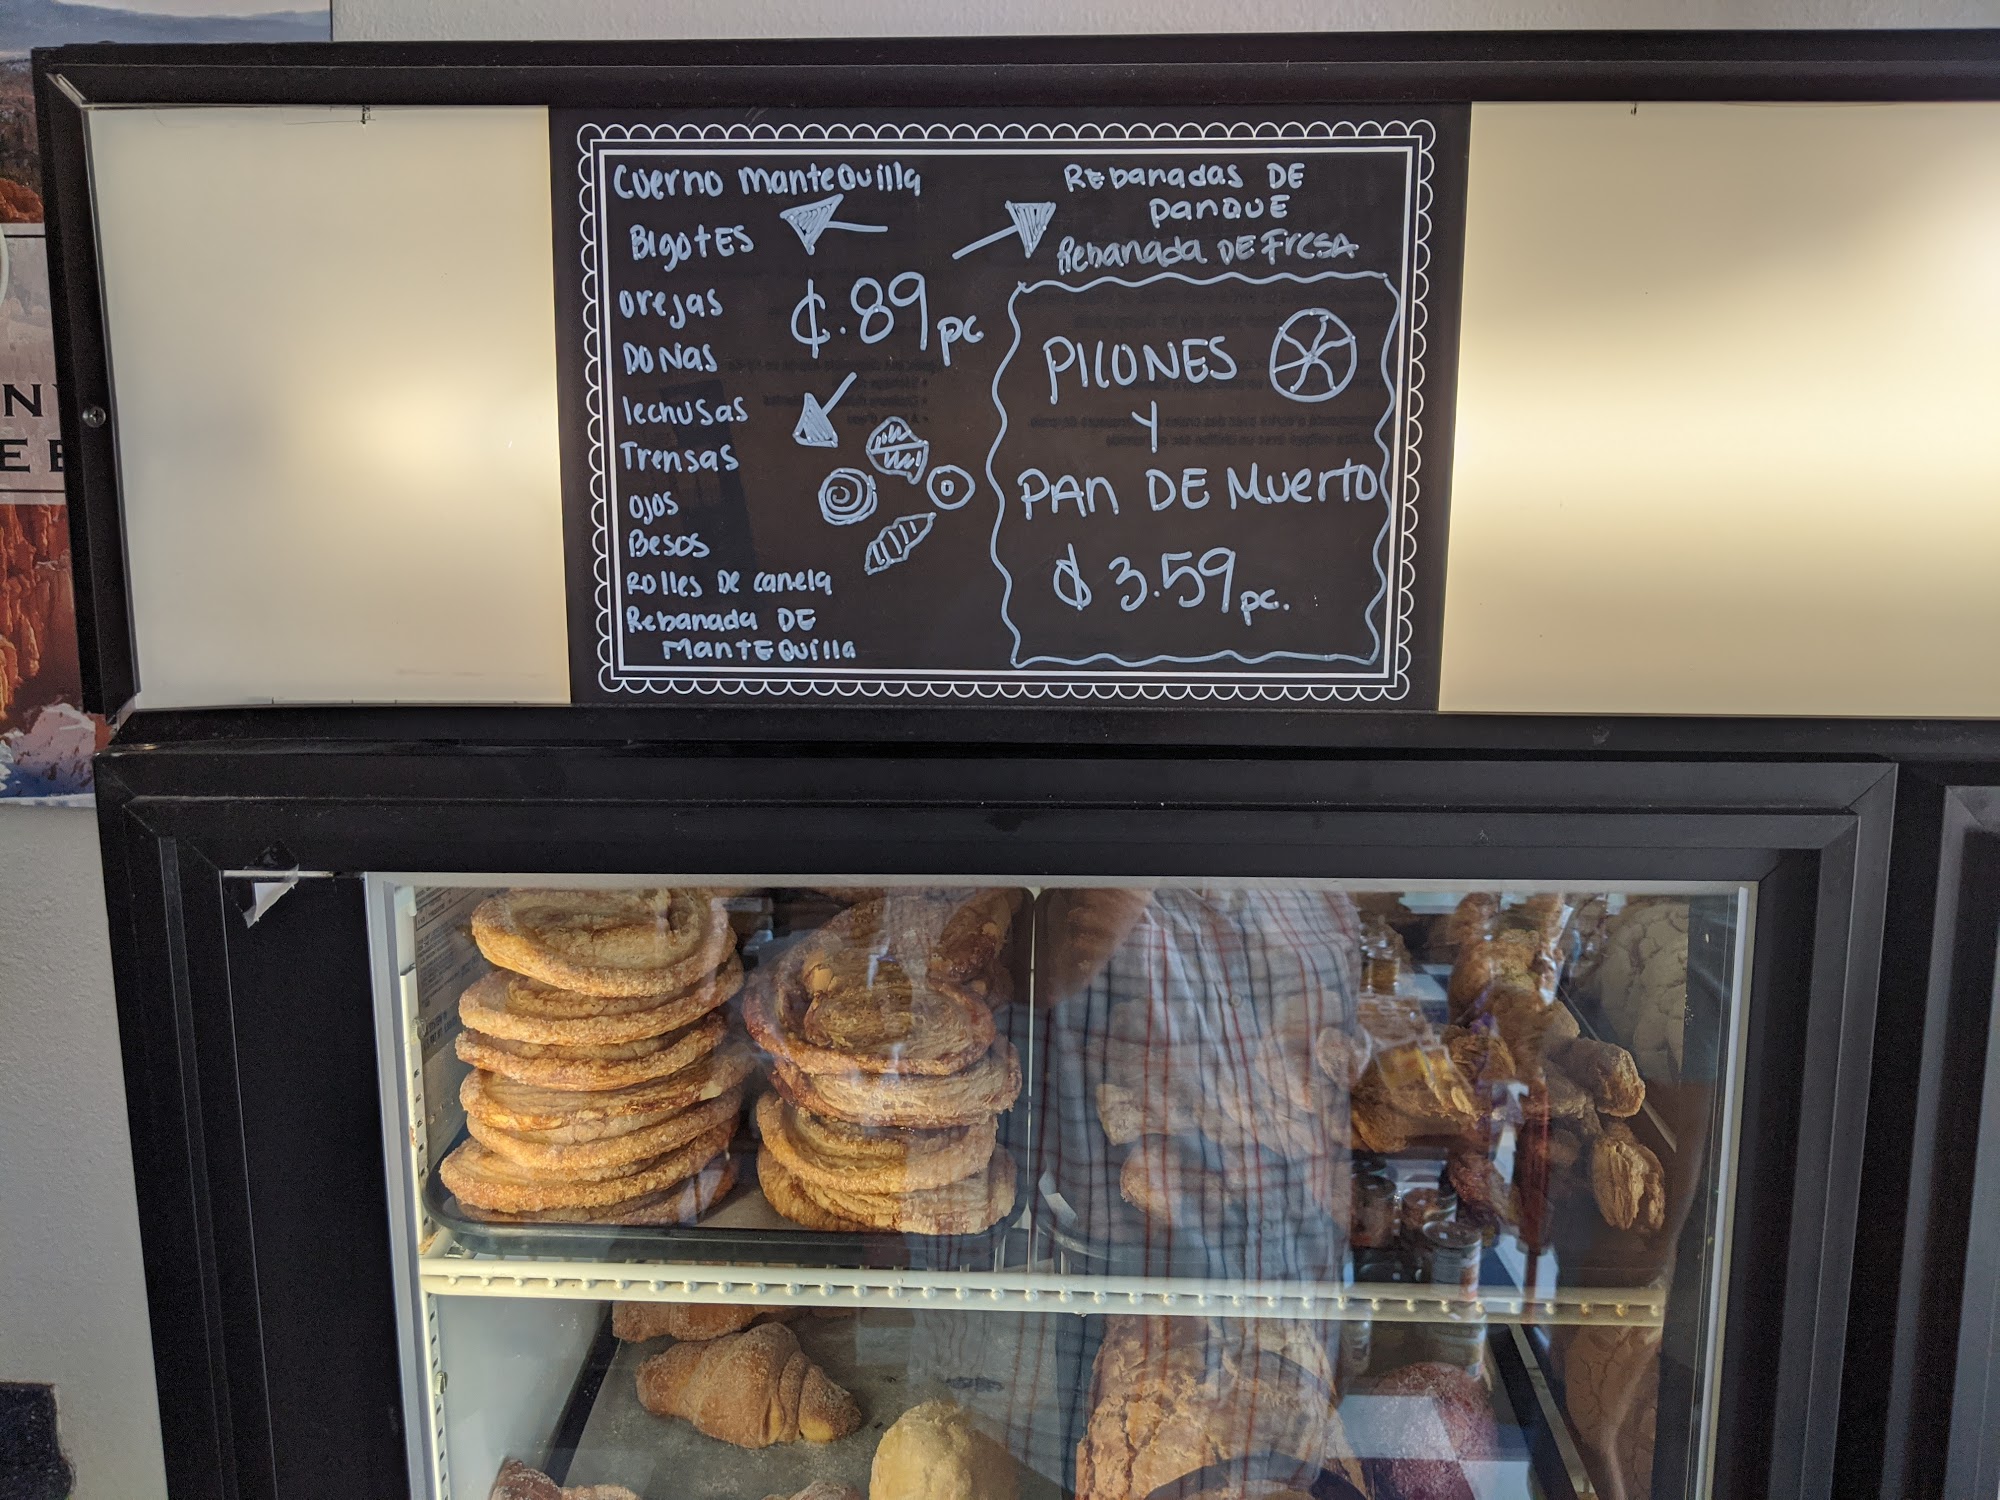 Cuerno Mantequilla
Bigotes
Orejas
Donas
lechusas
Trensas
Ojos
Besos
Rolles De canela
Rebanada DE
MantEquilla
¢.89 pc
REbanadas DE
panque
Rebanada DE Fresa
PILONES
Y
PAn DE Muerto
$ 3.59 pc.